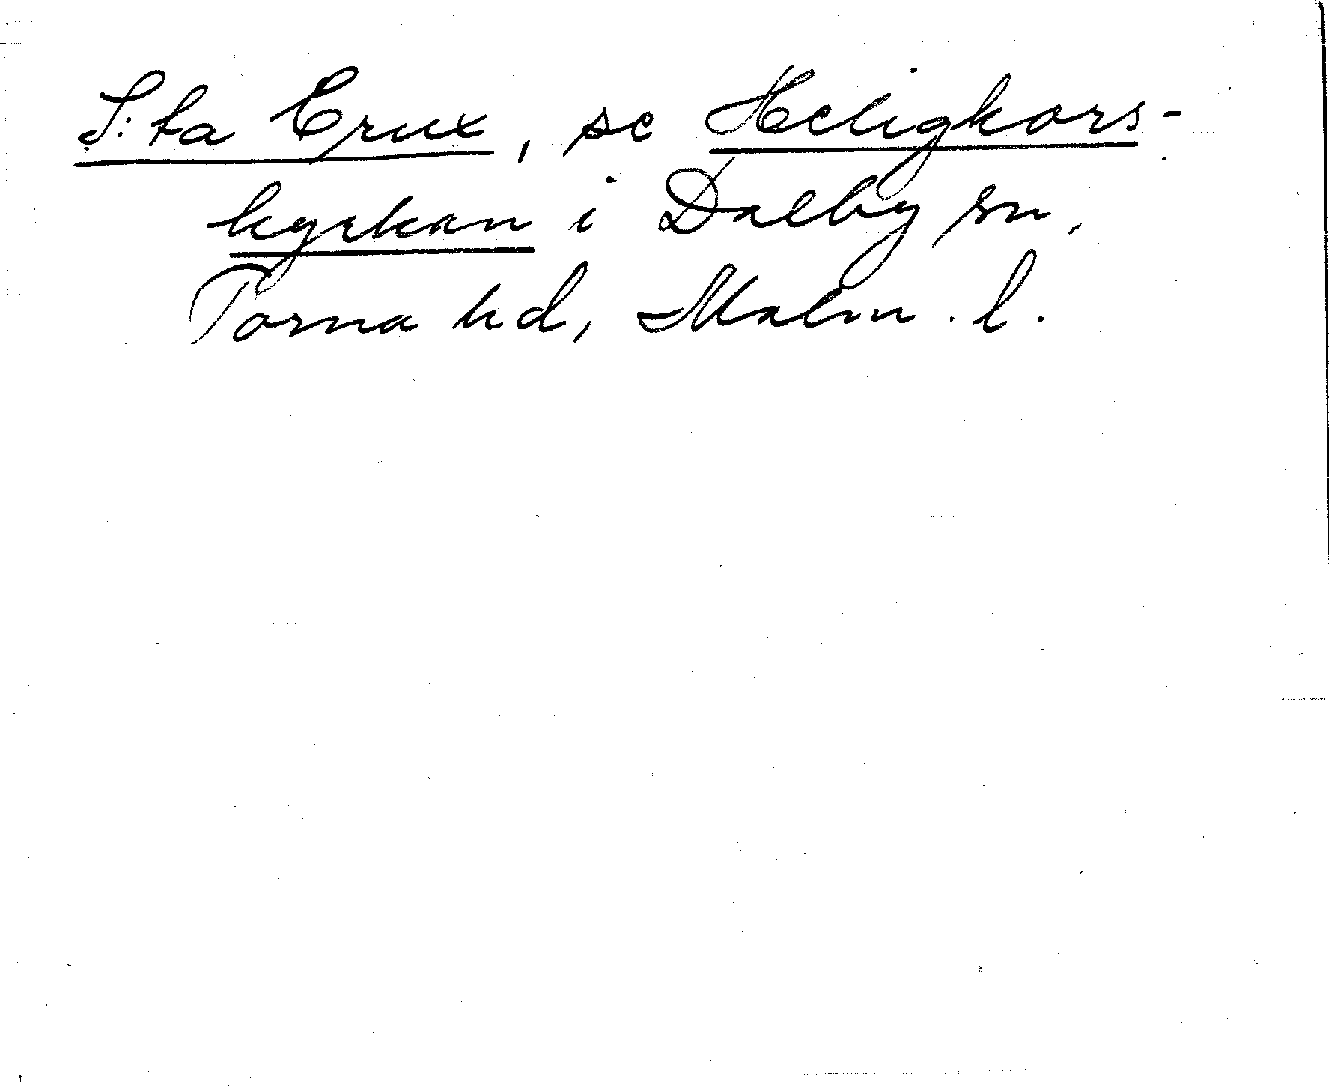 S:ta Crux, se Heligkors-
kyrkan i Dalby sn,
Torna hd, Malm. l.